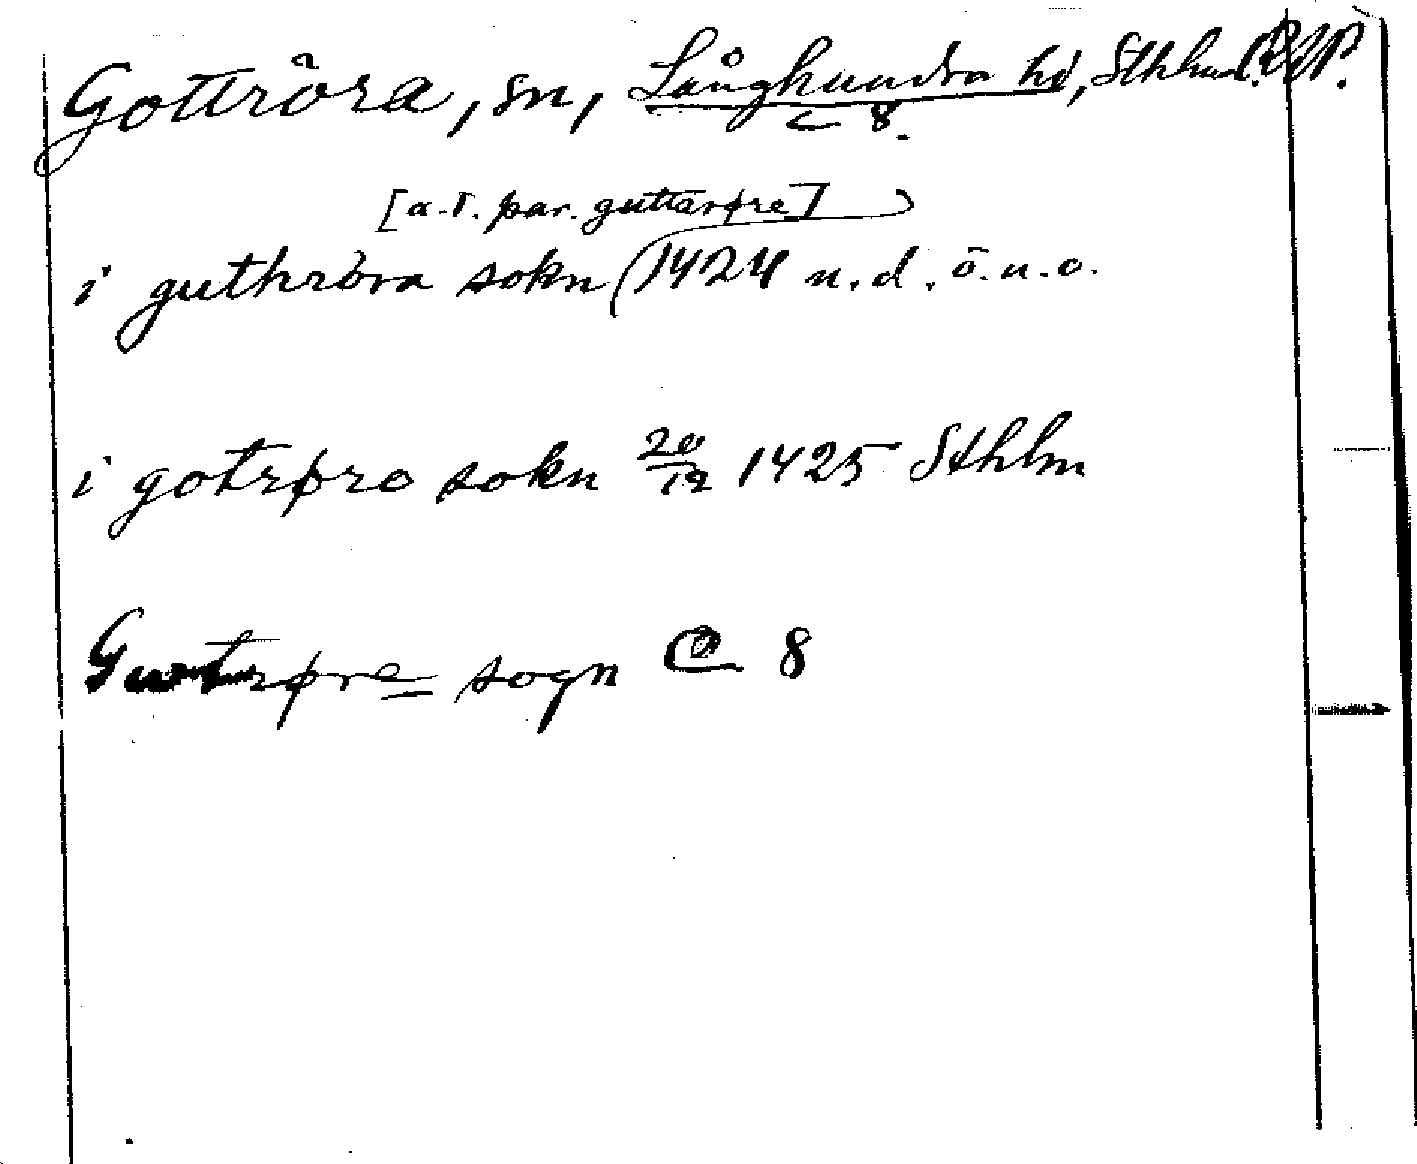 Gottröra, sn, Långhundra hd, Sthlms l.
C 8.
[a.t. par. guttarøre]
i guthröra sokn (1424 n.d. ö.u.o.
i gotrøro sokn 20/12 1425 Sthlm
Gutrøre sogn C 8